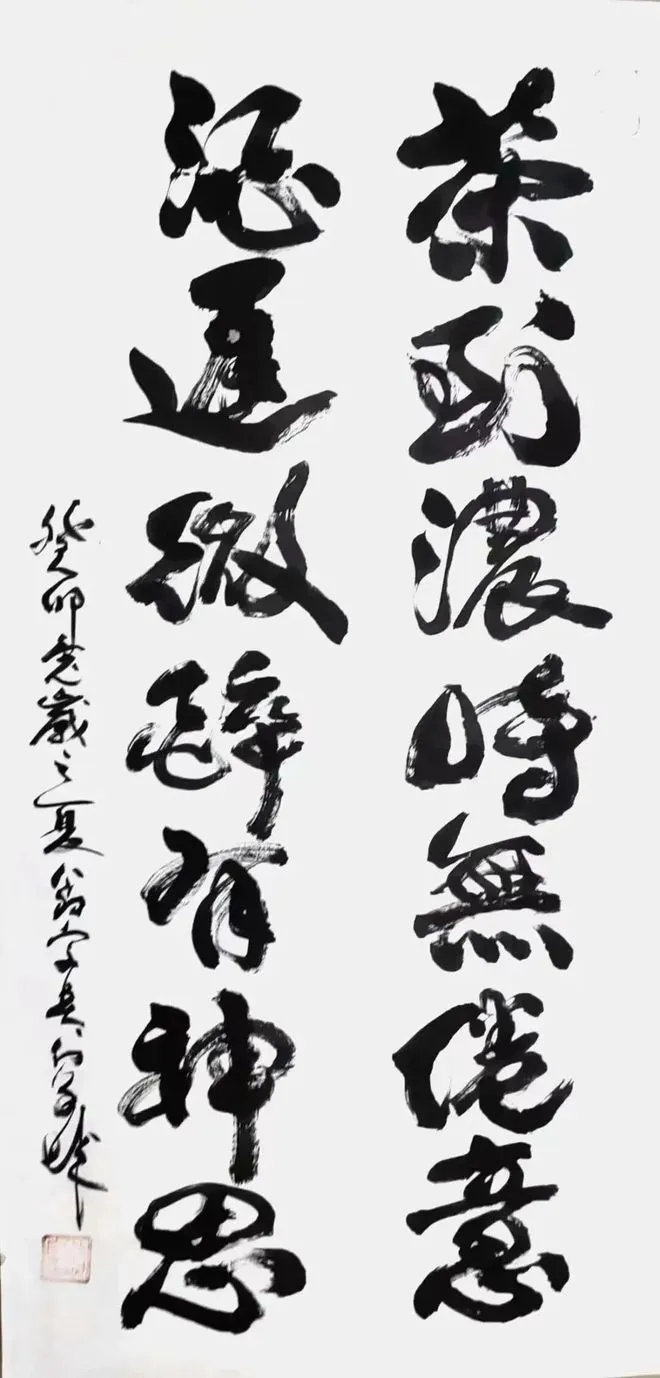 茶到濃時無倦意
酒微醉有神思
癸卯兔歲之夏